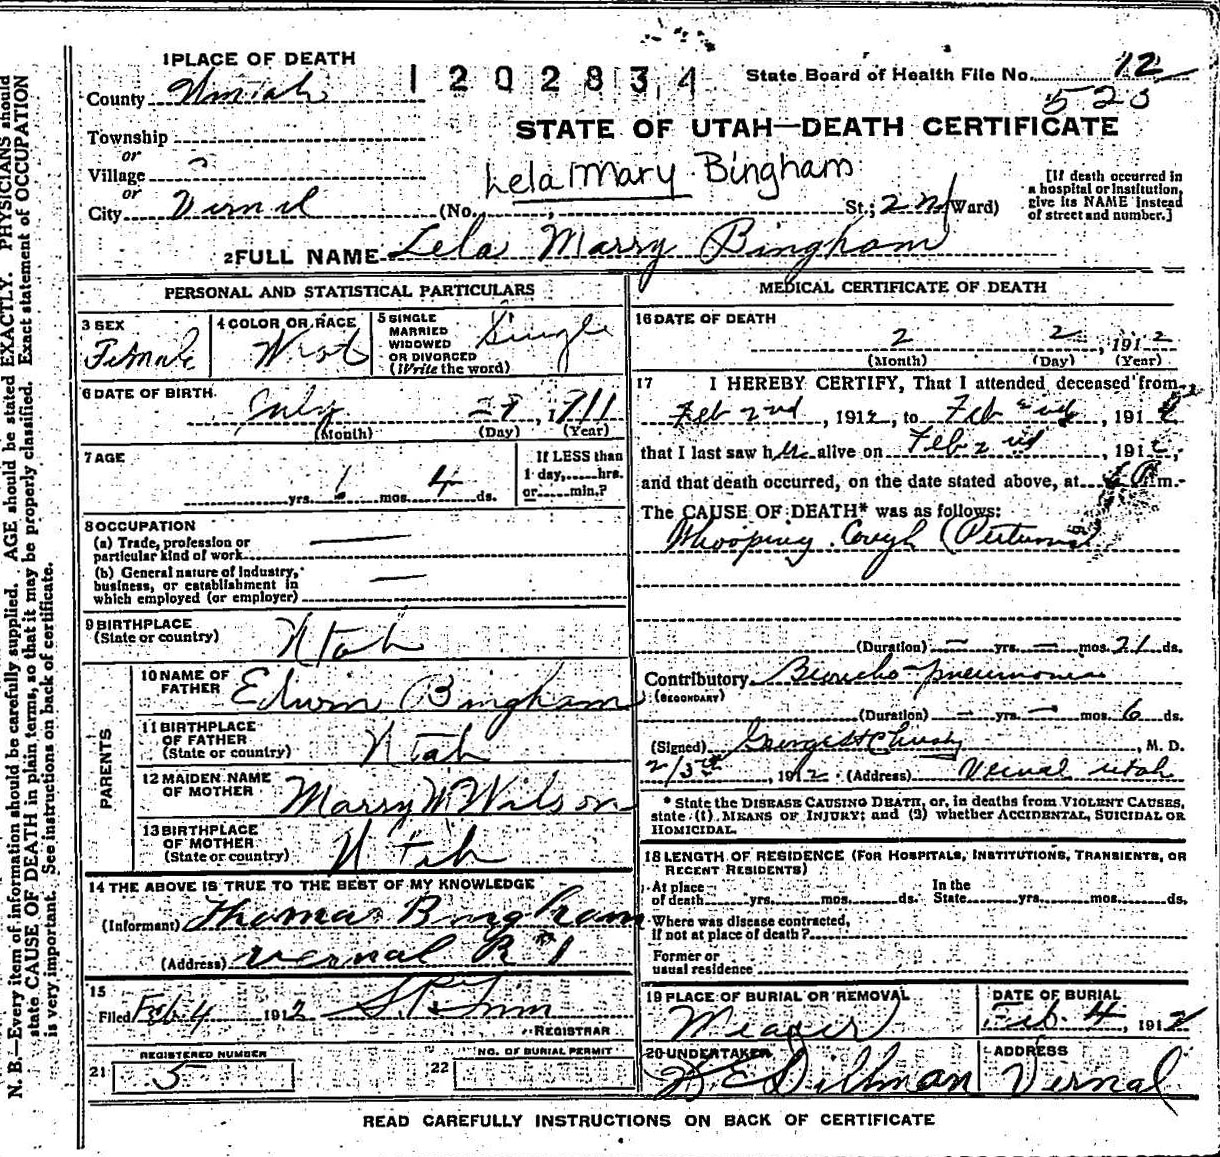 N. B.—Every item of information should be carefully supplied. AGE should be stated EXACTLY. PHYSICIANS should
state CAUSE OF DEATH in plain terms, so that it may be properly classified. Exact statement of OCCUPATION
is very important. See instructions on back of certificate.
1 PLACE OF DEATH
1202834
State Board of Health File No. 12
County
523
Township
or
STATE OF UTAH—DEATH CERTIFICATE
Village
or
Lela Mary Bingham
[If death occurred in
a hospital or institution,
give its NAME instead
of street and number.]
City Vernal (No. , St.; 2nd Ward)
2 FULL NAME Lela Marry Bingham
PERSONAL AND STATISTICAL PARTICULARS
3 SEX
Female
4 COLOR OR RACE
5 SINGLE
MARRIED
WIDOWED
OR DIVORCED
(Write the word)
Single
6 DATE OF BIRTH
July 29, 1911
(Month) (Day) (Year)
7 AGE
yrs. mos. 4 ds.
If LESS than
1 day, hrs.
or min.?
8 OCCUPATION
(a) Trade, profession or
particular kind of work —
(b) General nature of industry,
business, or establishment in
which employed (or employer) —
9 BIRTHPLACE
(State or country) Utah
PARENTS
10 NAME OF
FATHER Edwin Bingham
11 BIRTHPLACE
OF FATHER
(State or country) Utah
12 MAIDEN NAME
OF MOTHER Marry W Wilson
13 BIRTHPLACE
OF MOTHER
(State or country) Utah
14 THE ABOVE IS TRUE TO THE BEST OF MY KNOWLEDGE
(Informant) Thomas Bingham
(Address) Vernal R #1
15
Filed Feb 4 1912
REGISTRAR
REGISTERED NUMBER
21 5
NO. OF BURIAL PERMIT
22
MEDICAL CERTIFICATE OF DEATH
16 DATE OF DEATH
2 2, 1912
(Month) (Day) (Year)
17 I HEREBY CERTIFY, That I attended deceased from
Feb 2nd, 1912, to Feb 2nd, 191
that I last saw her alive on Feb 2nd, 191
and that death occurred, on the date stated above, at m.
The CAUSE OF DEATH* was as follows:
Whooping Cough
(Duration) — yrs. — mos. 21 ds.
Contributory Broncho-pneumonia
(SECONDARY)
(Duration) — yrs. — mos. 6 ds.
(Signed) , M. D.
1912 (Address) Vernal Utah
* State the DISEASE CAUSING DEATH, or, in deaths from VIOLENT CAUSES,
state (1) MEANS OF INJURY; and (2) whether ACCIDENTAL, SUICIDAL OR
HOMICIDAL.
18 LENGTH OF RESIDENCE (FOR HOSPITALS, INSTITUTIONS, TRANSIENTS, OR
RECENT RESIDENTS)
At place
of death yrs. mos. ds.
In the
State yrs. mos. ds.
Where was disease contracted,
if not at place of death?
Former or
usual residence
19 PLACE OF BURIAL OR REMOVAL
DATE OF BURIAL
Feb. 4, 1912
20 UNDERTAKER
Dillman
ADDRESS
Vernal
READ CAREFULLY INSTRUCTIONS ON BACK OF CERTIFICATE